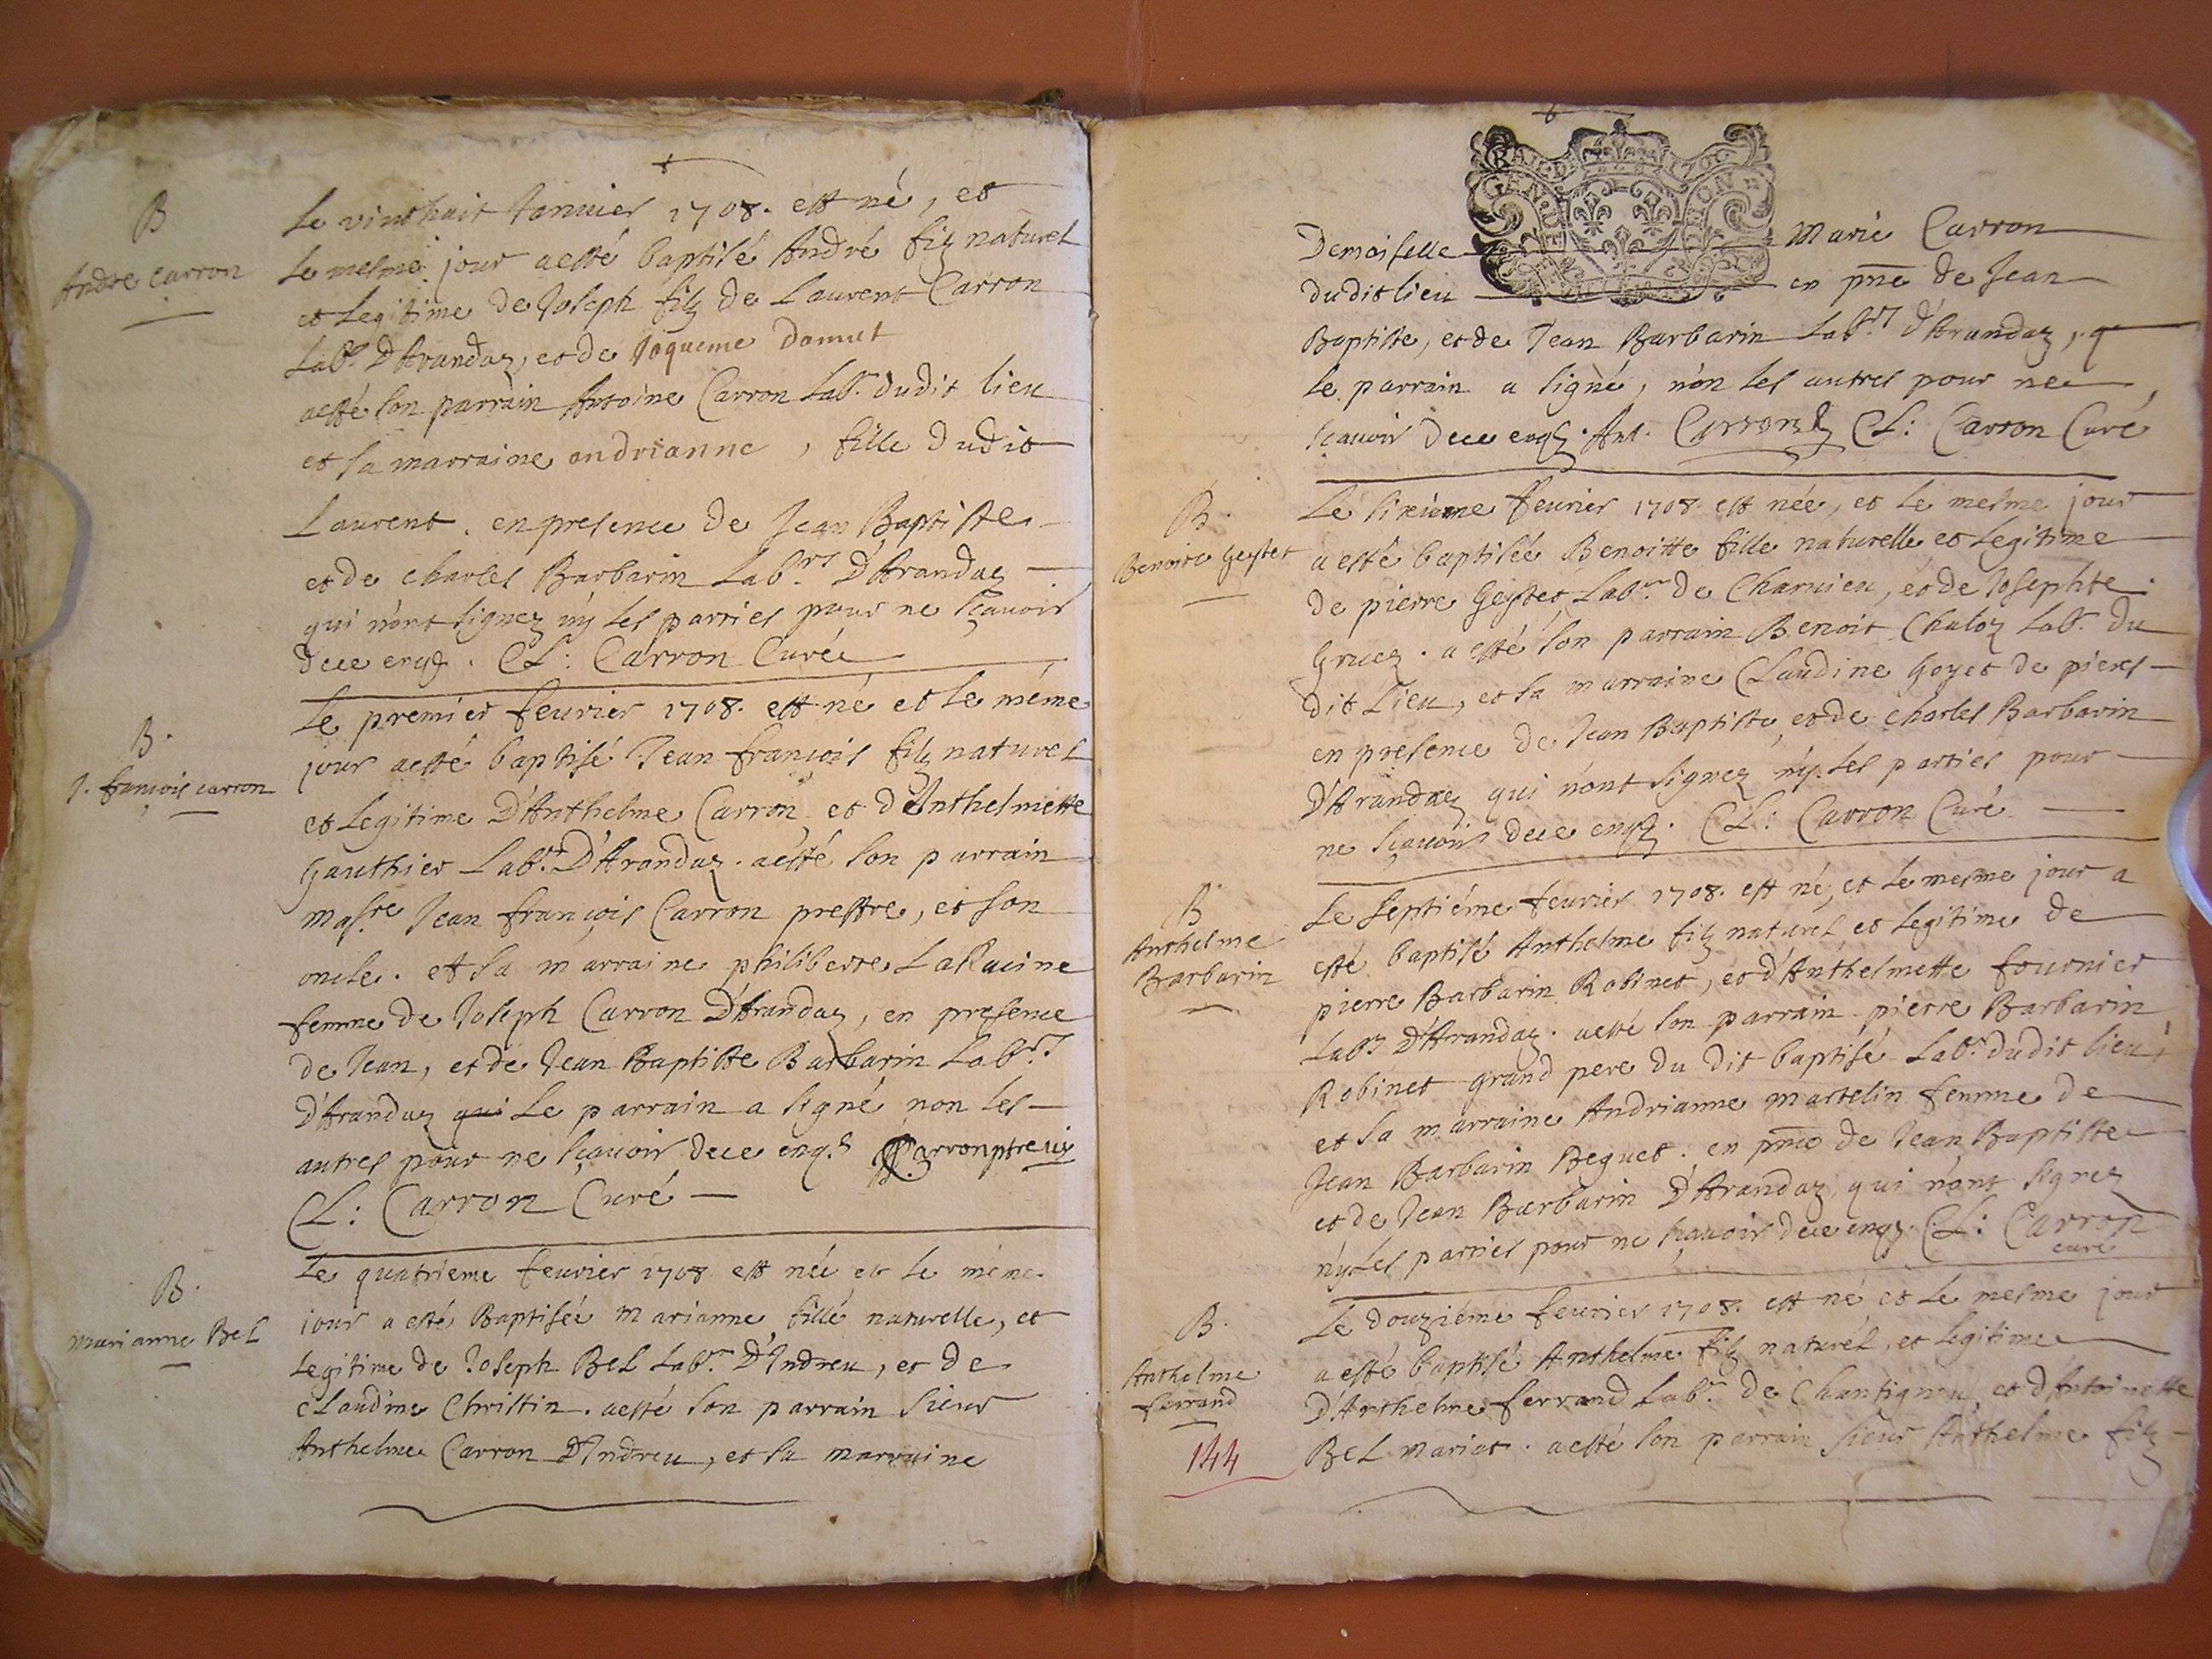 B
Andre carron
Le vint huit Januier 1708. est né, et
Le mesme jour a esté baptisé André filz naturel
et Legitime de Joseph filz de Laurent Carron
Labr. D'Arandaz, et de Joqueme Domut
a esté son parrain Antoine Carron Labr. dudit lieu
et sa marraine andrianne, fille dudit
Laurent. en presence de Jean Baptiste
et de charles Barbarin Labrs. D'Arandaz
qui n'ont signez ny les parties pour ne sçauoir
de ce enqz. CL: Carron Curé
B.
J. françois carron
Le premier feurier 1708. est né et le méme
jour a esté baptisé Jean françois filz naturel
et Legitime D'Anthelme Carron et d'Anthelmette
Gauthier Labr. D'Arandaz. a esté son parrain
Messre Jean françois Carron prestre, et son
oncle. et sa marraine philiberte LaRacine
femme de Joseph Carron D'Arandaz, en presence
de Jean, et de Jean Baptiste Barbarin Labrs
D'Arandaz qui Le parrain a signé non les
autres pour ne sçauoir de ce enqs Carron ptre vic
CL: Carron Curé
B.
Marianne Bel
Le quatrieme feurier 1708 est née et le méme
jour a esté Baptisée Marianne fille naturelle, et
Legitime de Joseph Bel Labr. D'Indrieu, et de
Claudine Christin. a esté son parrain Sieur
Anthelme Carron D'Indrieu, et sa marraine
GEN. DE
1706
Demoiselle Marie Carron
dudit lieu en pnce de Jean
Baptiste, et de Jean Barbarin Labrs D'Arandaz, q
le parrain a signé, non les autres pour ne
sçauoir de ce enqz. Ant. Carron CL: Carron Curé
B.
Benoite Geystet
Le sixieme feurier 1708 est née, et le mesme jour
a esté baptisée Benoitte fille naturelle et Legitime
de pierre Geystet Labr. de Charuieu, et de Josephte
Gruez. a esté son parrain Benoit Chaloz Labr. du
dit Lieu, et sa marraine Claudine Goyet de pieres
en presence de Jean Baptiste, et de charles Barbarin
D'Arandaz qui n'ont signez ny les parties pour
ne sçauoir de ce enqz. CL: Carron Curé
B
Anthelme
Barbarin
Le Septiéme feurier 1708. est né, et le mesme jour a
esté baptisé Anthelme filz naturel et Legitime de
pierre Barbarin Robinet, et d'Anthelmette fournier
Labr D'Arandaz. a esté son parrain pierre Barbarin
Robinet grand pere du dit baptisé Labr. dudit lieu
et sa marraine Andrianne Martelin femme de
Jean Barbarin Beguet. en pnce de Jean Baptiste
et de Jean Barbarin D'Arandaz qui n'ont signez
ny les parties pour ne sçauoir de ce enqz. CL: Carron
curé
B.
Anthelme
ferrand
Le douziéme feurier 1708. est né et le mesme jour
a esté baptisé Anthelme filz naturel, et Legitime
D'Anthelme ferrand Labr. de Chantigneu et d'Antoinette
Bel Mariat. a esté son parrain Sieur Anthelme filz
144